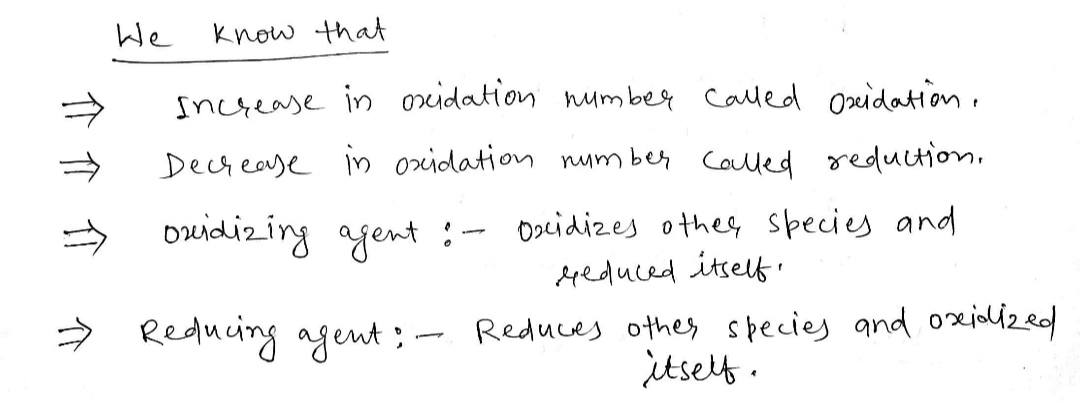 We know that
⇒ Increase in oxidation number called oxidation.
⇒ Decrease in oxidation number called reduction.
⇒ oxidizing agent :- Oxidizes other species and
reduced itself.
⇒ Reducing agent :- Reduces other species and oxidized
itself.